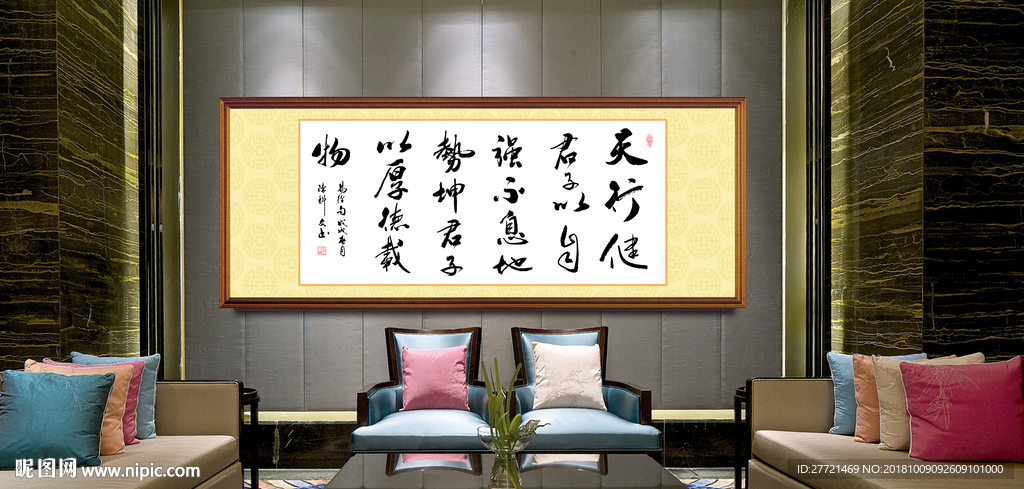 天行健
君子以自
强不息地
勢坤君子
以厚德載
物
易经句戊戌春月
昵图网 www.nipic.com
ID:27721469 NO:20181009092609101000